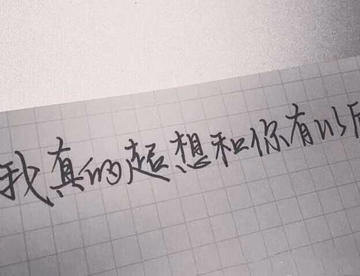 我真的超想和你有以后